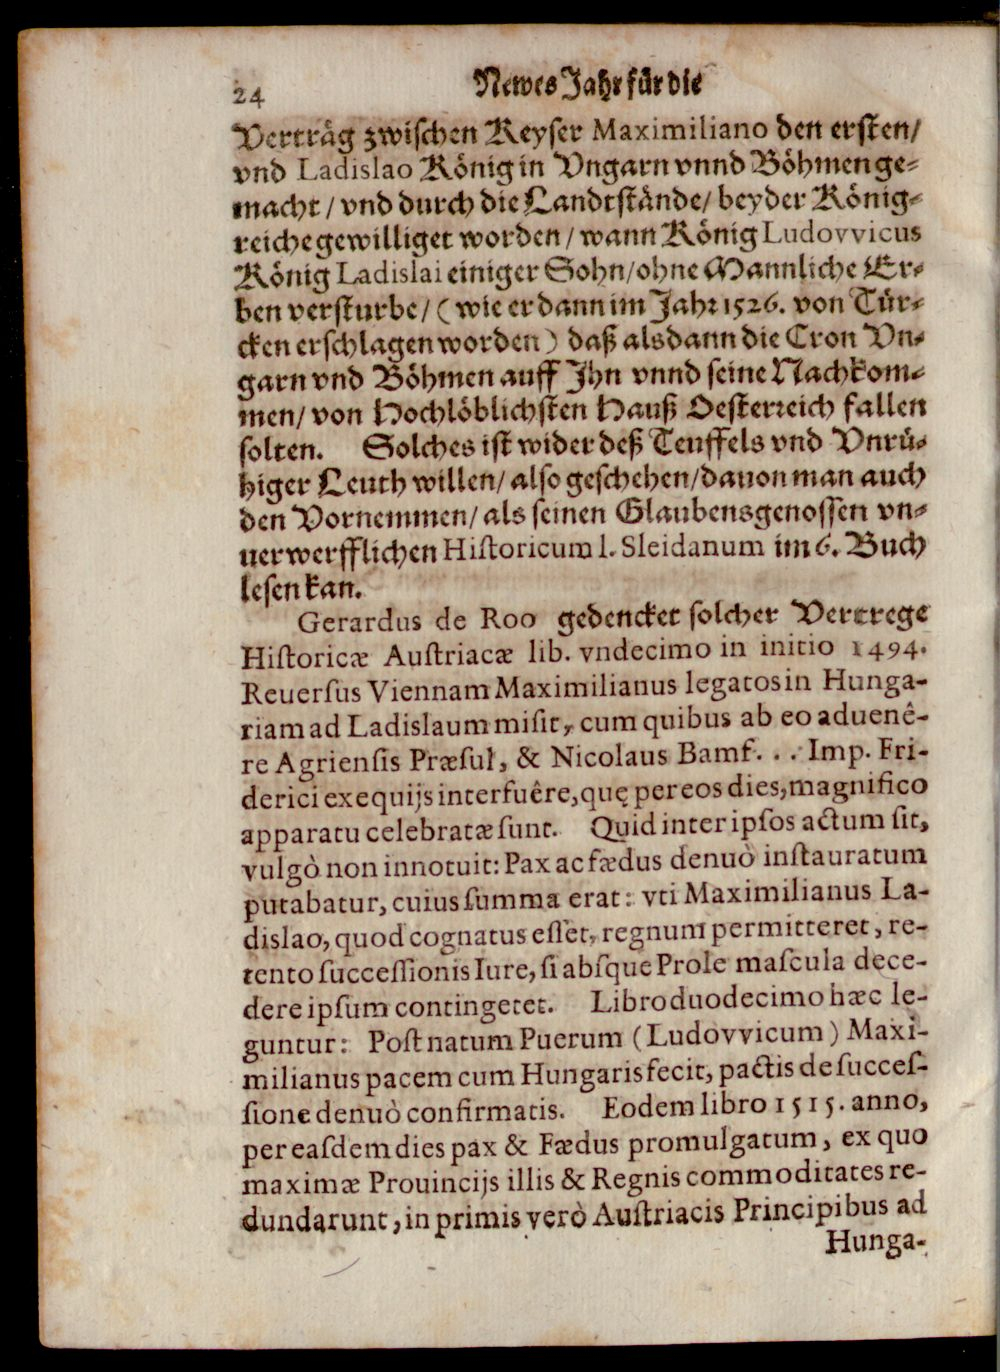 24 Newes Jahr für die
Verträg zwischen Keyser Maximiliano den ersten/
vnd Ladislao König in Vngarn vnnd Böhmen ge⸗
macht/ vnd durch die Landtstände/ beyder König⸗
reiche gewilliget worden/ wann König Ludovvicus
König Ladislai einiger Sohn/ ohne Mannliche Er⸗
ben versturbe/ (wie er dann im Jahr 1526. von Tür⸗
cken erschlagen worden) daß alsdann die Cron Vn⸗
garn vnd Böhmen auff Jhn vnnd seine Nachkom⸗
men/ von Hochlöblichsten Hauß Oesterreich fallen
solten. Solches ist wider deß Teuffels vnd Vnrü⸗
higer Leuth willen/ also geschehen/ dauon man auch
den Vornemmen/ als seinen Glaubensgenossen vn⸗
uerwerfflichen Hiſtoricum l. Sleidanum im 6. Buch
lesen kan.
Gerardus de Roo gedencket solcher Vertrege
Hiſtoricæ Auſtriacæ lib. vndecimo in initio 1494.
Reuerſus Viennam Maximilianus legatos in Hunga-
riam ad Ladislaum miſit, cum quibus ab eo aduenê-
re Agrienſis Præſul, & Nicolaus Bamf. . . Imp. Fri-
derici exequijs interfuêre, quę per eos dies, magnifico
apparatu celebratæ ſunt. Quid inter ipſos actum ſit,
vulgò non innotuit: Pax ac fædus denuò inſtauratum
putabatur, cuius ſumma erat: vti Maximilianus La-
dislao, quod cognatus eſſet, regnum permitteret, re-
tento ſucceſſionis Iure, ſi abſque Prole maſcula dece-
dere ipſum contingetet. Libro duodecimo hæc le-
guntur: Poſt natum Puerum (Ludovvicum) Maxi-
milianus pacem cum Hungaris fecit, pactis de ſucceſ-
ſione denuò confirmatis. Eodem libro 1515. anno,
per eaſdem dies pax & Fædus promulgatum, ex quo
maximæ Prouincijs illis & Regnis commoditates re-
dundarunt, in primis verò Auſtriacis Principibus ad
Hunga-